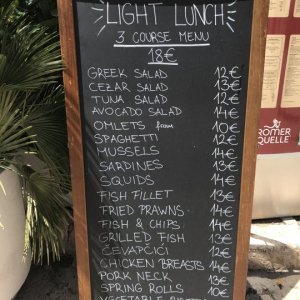 LIGHT LUNCH
3 COURSE MENU
18€
GREEK SALAD 12€
CEZAR SALAD 13€
TUNA SALAD 12€
AVOCADO SALAD 14€
OMLETS from 10€
SPAGHETTI 12€
MUSSELS 14€
SARDINES 13€
SQUIDS 14€
FISH FILLET 13€
FRIED PRAWNS 14€
FISH & CHIPS 14€
GRILLED FISH 13€
ĆEVAPČIĆI 12€
CHICKEN BREASTS 14€
PORK NECK 13€
SPRING ROLLS 10€
VEGETABLE
RÖMER
QUELLE